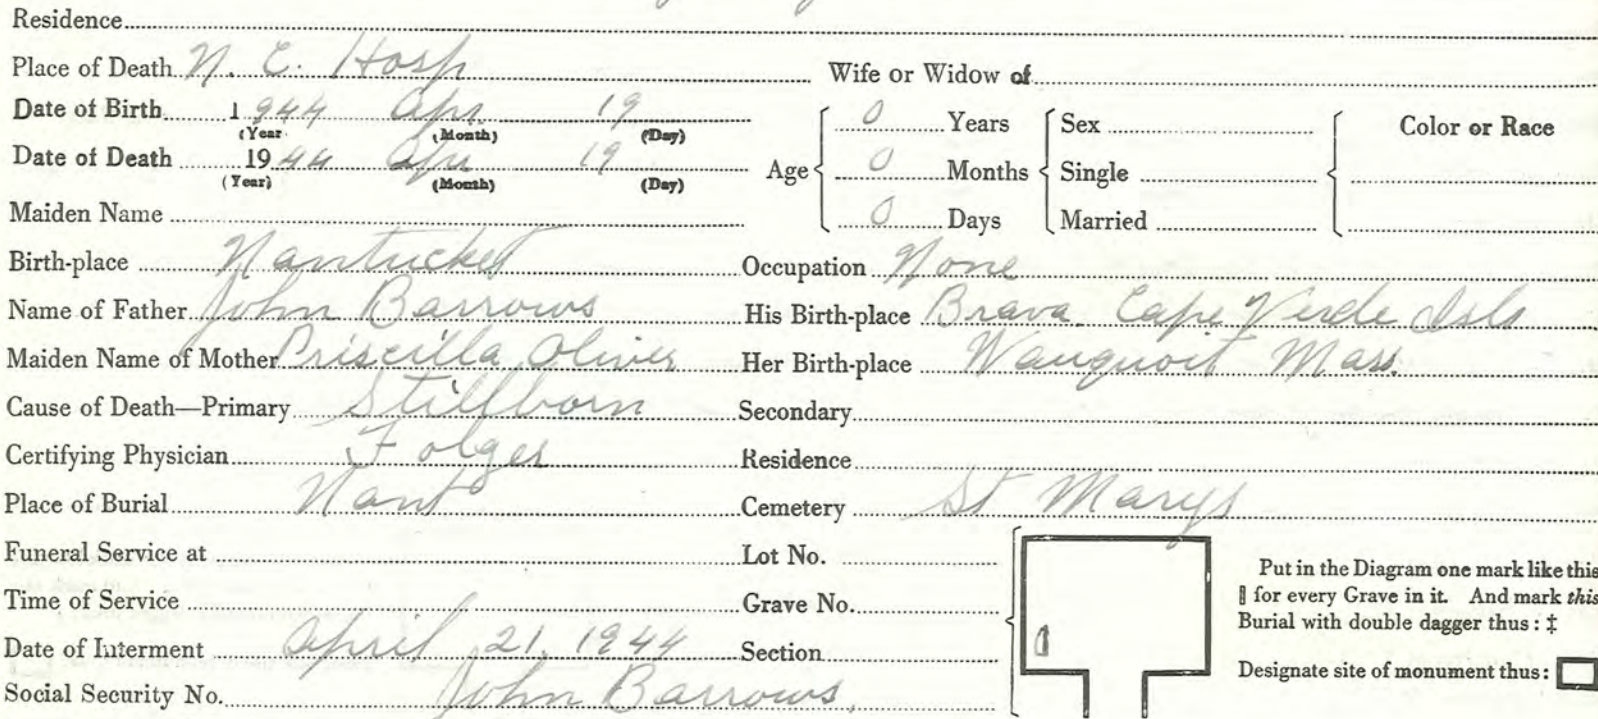 Residence
Place of Death N. C. Hosp Wife or Widow of
Date of Birth 1944 Apr. 19
(Year (Month) (Day)
Date of Death 1944 Apr 19
(Year) (Month) (Day)
Age 0 Years Sex Color or Race
0 Months Single
0 Days Married
Maiden Name
Birth-place Nantucket Occupation None
Name of Father John Barrows His Birth-place Brava. Cape Verde Isls
Maiden Name of Mother Priscilla Oliver Her Birth-place Wauquoit Mass.
Cause of Death—Primary Stillborn Secondary
Certifying Physician Folger Residence
Place of Burial Nant Cemetery St Marys
Funeral Service at Lot No.
Time of Service Grave No.
Date of Interment April 21, 1944 Section
Social Security No. John Barrows.
Put in the Diagram one mark like this
for every Grave in it. And mark this
Burial with double dagger thus: ‡
Designate site of monument thus: